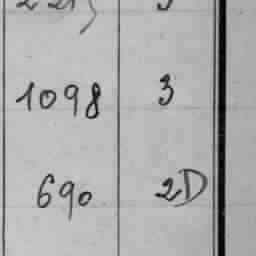 1098 3
690 2D